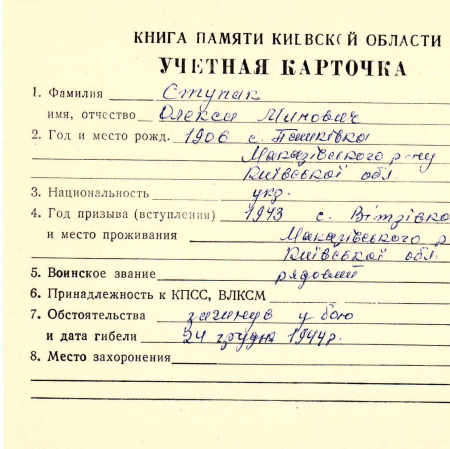 КНИГА ПАМЯТИ КИЕВСКОЙ ОБЛАСТИ
УЧЕТНАЯ КАРТОЧКА
1. Фамилия Ступак
имя, отчество Олекса Минович
2. Год и место рожд. 1906 с. Пашківка
Макарівського р-ну
Київської обл.
3. Национальность укр.
4. Год призыва (вступления) 1943 с.
и место проживания Макарівського р
Київської обл.
5. Воинское звание рядовий
6. Принадлежность к КПСС, ВЛКСМ
7. Обстоятельства загинув у бою
и дата гибели 24 грудня 1944р.
8. Место захоронения